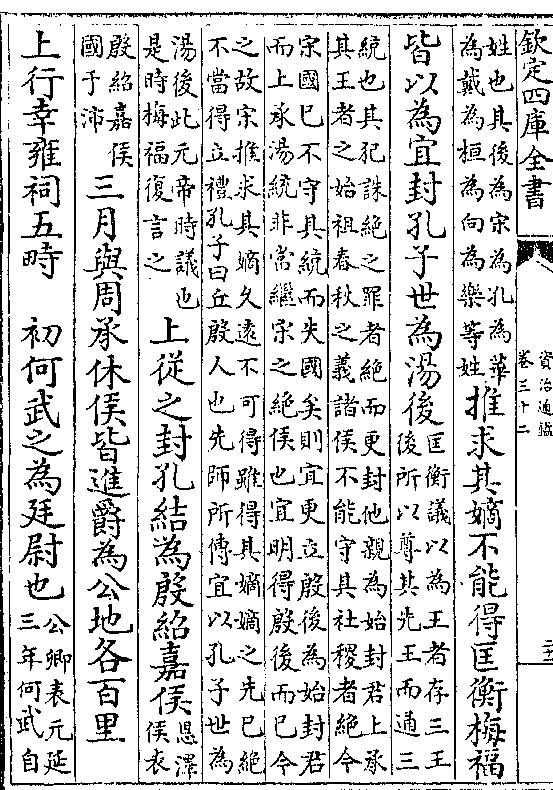 欽定四庫全書
資治通鑑
卷三十二
姓也其後為宋為孔為華
為戴為桓為向為樂等姓
推求其嫡不能得匡衡梅福
皆以為宜封孔子世為湯後
匡衡議以為王者存三王
後所以尊其先王而通三
統也其犯誅絶之罪者絶而更封他親為始封君上承
其王者之始祖春秋之義諸侯不能守其社稷者絶今
宋國已不守其統而失國矣則宜更立殷後為始封君
而上承湯統非當繼宋之絶侯也宜明得殷後而已今
之故宋推求其嫡久遠不可得雖得其嫡嫡之先已絶
不當得立禮孔子曰丘殷人也先師所傳宜以孔子世為
湯後此元帝時議也
是時梅福復言之
上從之封孔結為殷紹嘉侯
恩澤
侯表
殷紹嘉侯
國于沛
三月與周承休侯皆進爵為公地各百里
上行幸雍祠五時 初何武之為廷尉也
公卿表元延
三年何武自